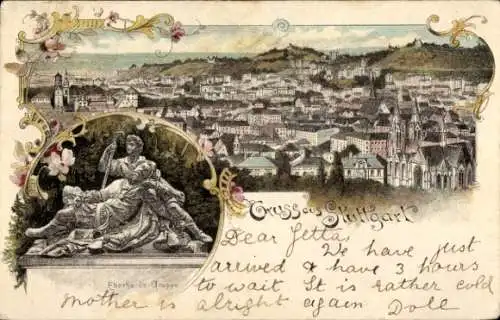 Gruss aus Stuttgart
Eberhards Gruppe
Dear Jetta,
We have just
arrived & have 3 hours
to wait It is rather cold
mother is alright again Dole